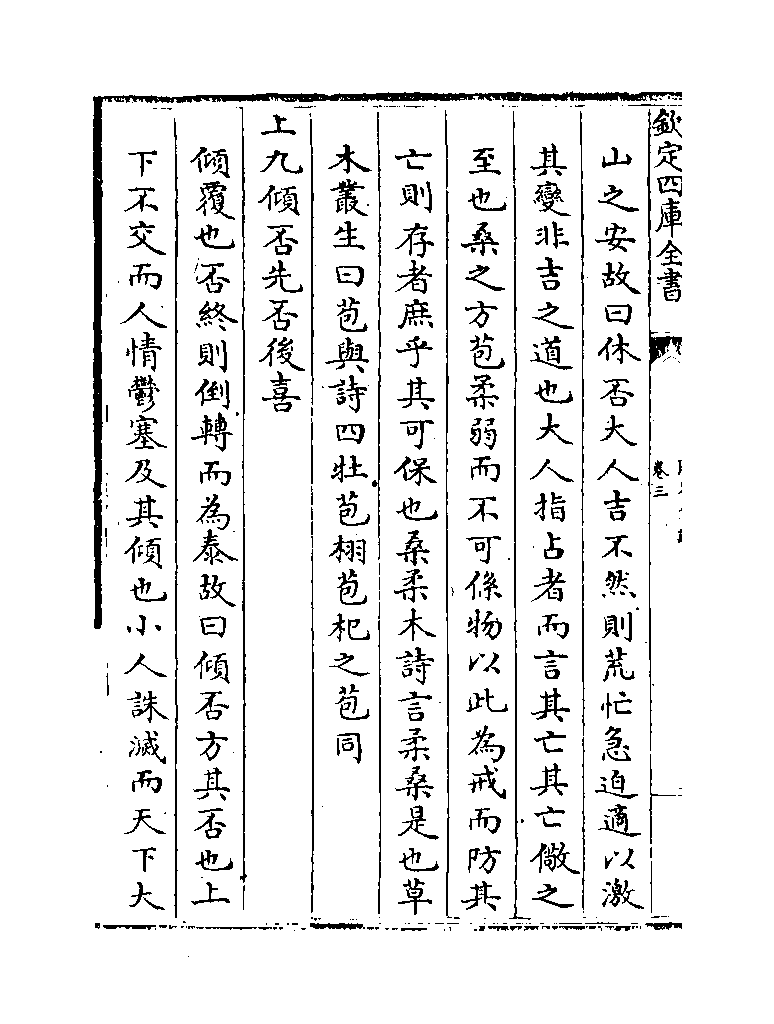 欽定四庫全書
卷三
山之安故曰休否大人吉不然則荒忙急迫適以激
其變非吉之道也大人指占者而言其亡其亡儆之
至也桑之方苞柔弱而不可係物以此為戒而防其
亡則存者庶乎其可保也桑柔木詩言柔桑是也草
木叢生曰苞與詩四牡苞栩苞杞之苞同
上九傾否先否後喜
傾覆也否終則倒轉而為泰故曰傾否方其否也上
下不交而人情鬱塞及其傾也小人誅滅而天下大